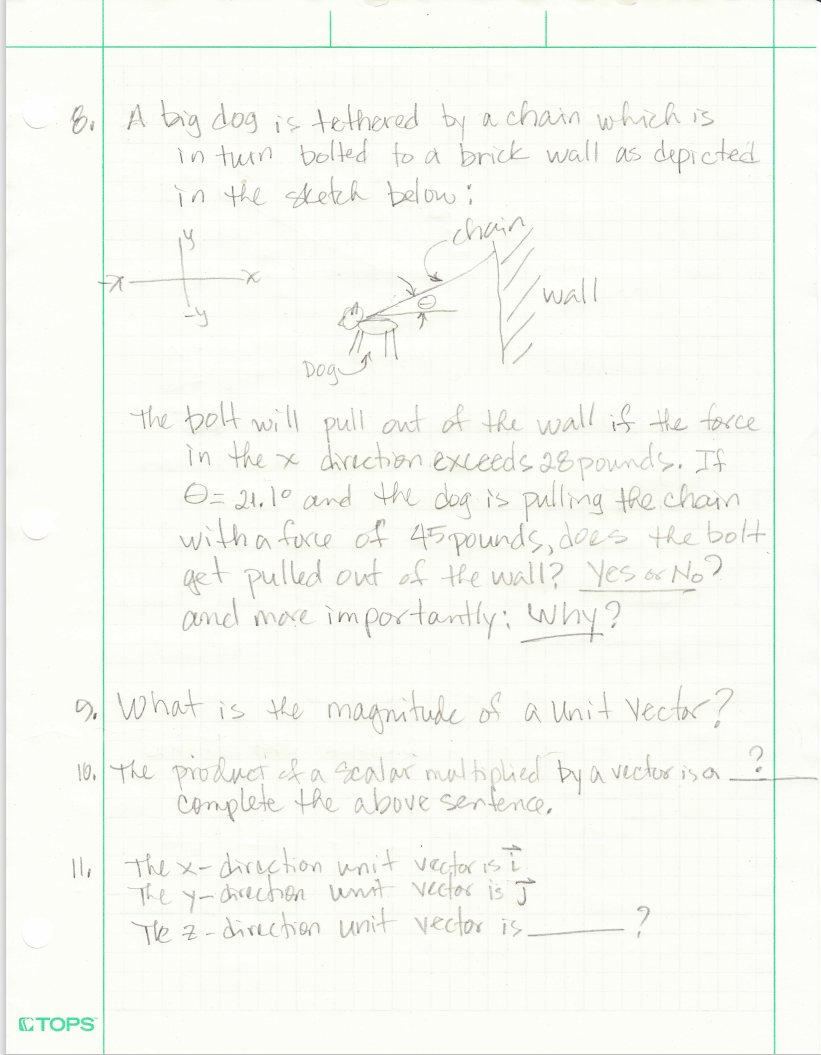 8. A big dog is tethered by a chain which is
in turn bolted to a brick wall as depicted
in the sketch below:
y
chain
-x
x
θ
wall
-y
Dog
The bolt will pull out of the wall if the force
in the x direction exceeds 28 pounds. If
θ = 21.1° and the dog is pulling the chain
with a force of 45 pounds, does the bolt
get pulled out of the wall? Yes or No?
and more importantly: Why?
9. What is the magnitude of a unit vector?
10. The product of a scalar multiplied by a vector is a ?
complete the above sentence.
11. The x-direction unit vector is i⃗
The y-direction unit vector is j⃗
The z-direction unit vector is ______ ?
TOPS